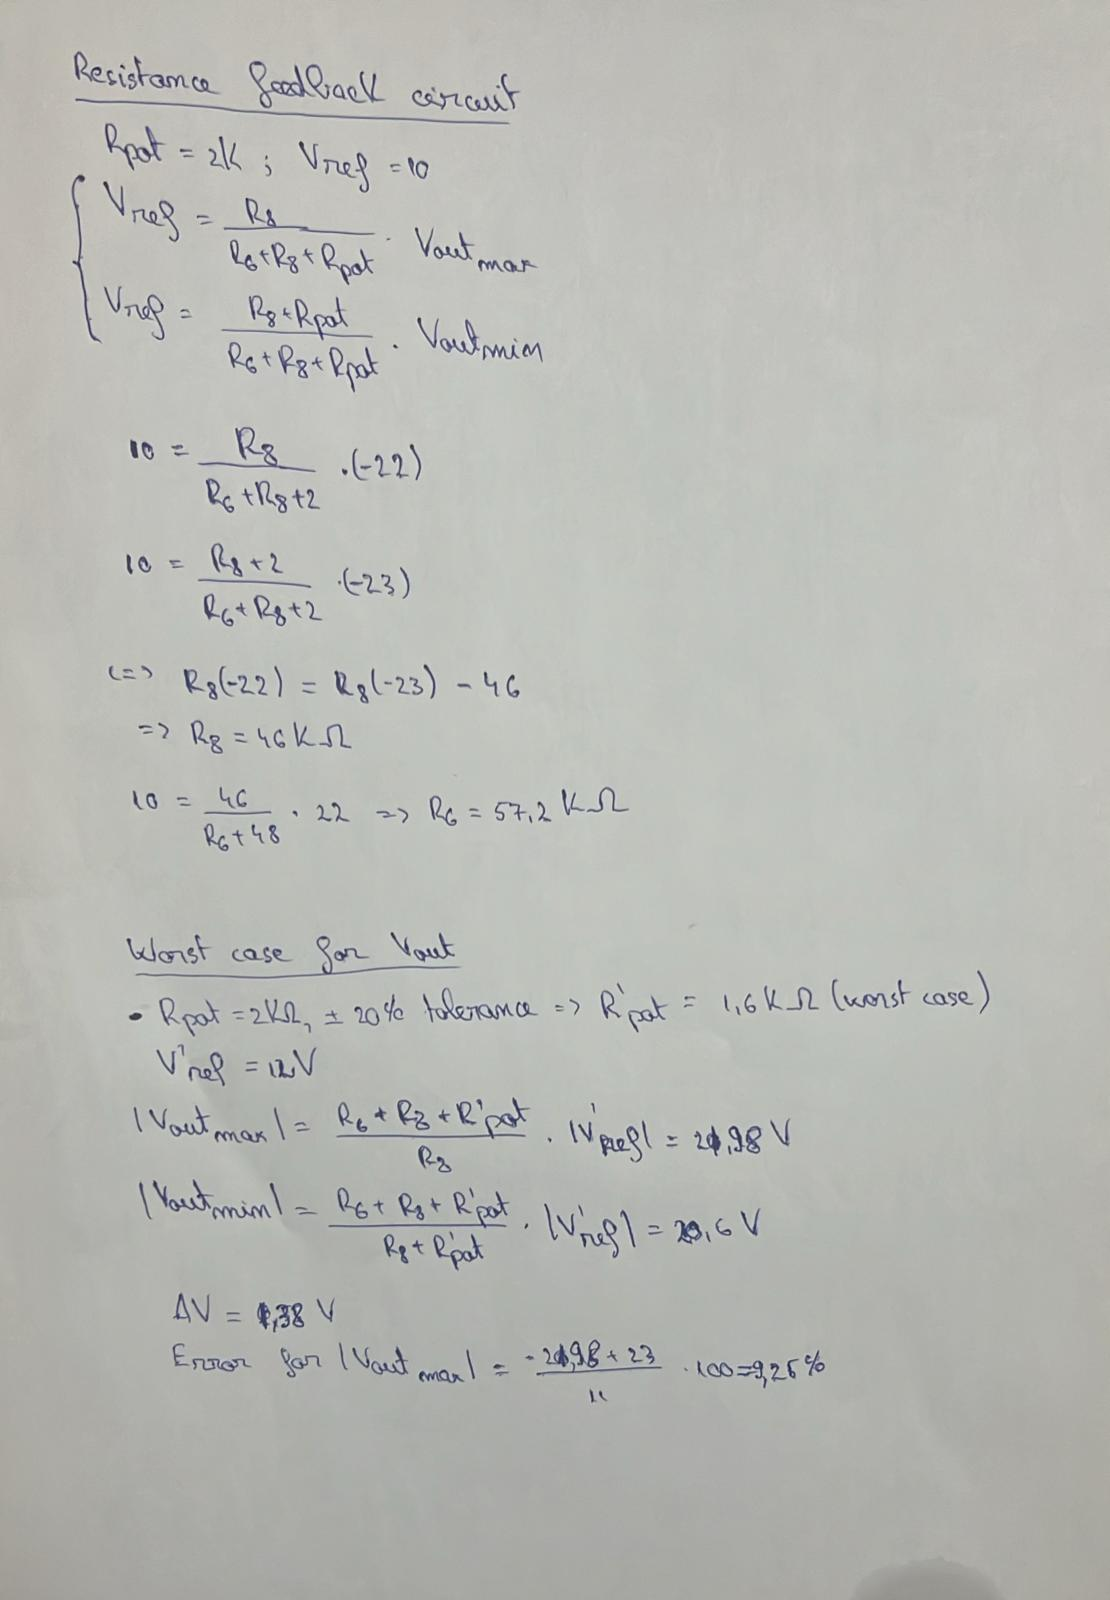 Resistance feedback circuit
Rpot = 2K ; Vref = 10
Vref = R8 / (R6+R8+Rpot) · Vout max
Vref = (R8+Rpot) / (R6+R8+Rpot) · Vout min
10 = R8 / (R6+R8+2) · (-22)
10 = (R8+2) / (R6+R8+2) · (-23)
<=> R8(-22) = R8(-23) - 46
=> R8 = 46 KΩ
10 = 46 / (R6+48) · 22 => R6 = 57,2 KΩ
Worst case for Vout
• Rpot = 2KΩ, ± 20% tolerance => R'pot = 1,6 KΩ (worst case)
V'ref = 12V
|Vout max| = (R6+R8+R'pot) / R8 · |V'ref| =
|Vout min| = (R6+R8+R'pot) / (R8+R'pot) · |V'ref| =
ΔV = 1,38 V
Error for |Vout max| = + 23 / · 100 = %